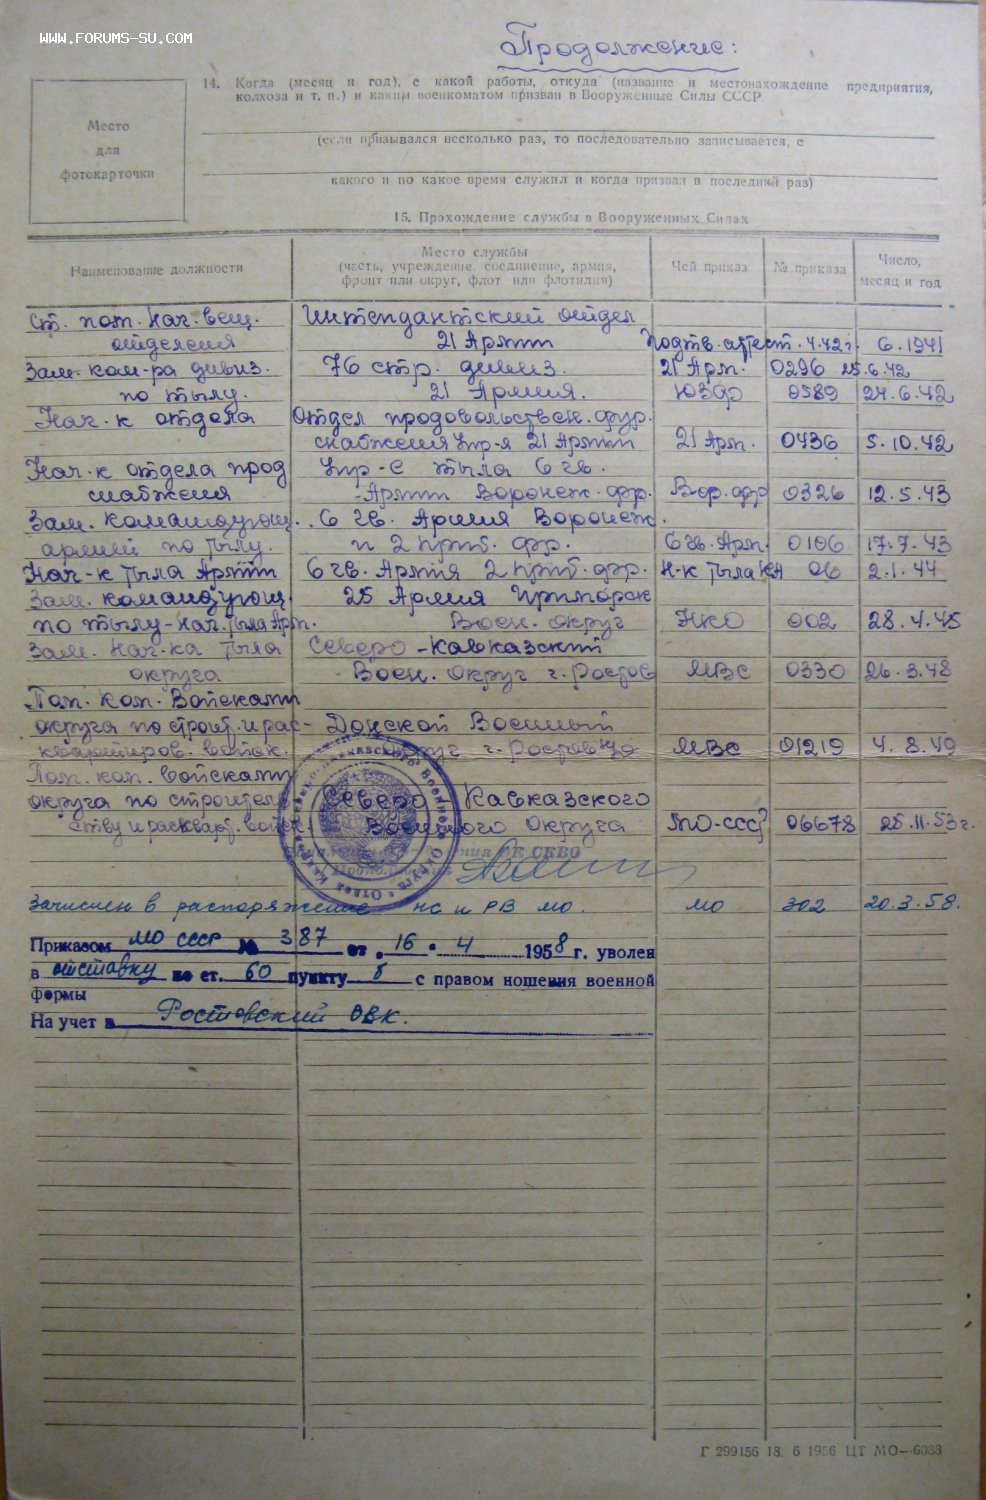 WWW.FORUMS-SU.COM
Продолжение:
Место
для
фотокарточки
14. Когда (месяц и год), с какой работы, откуда (название и местонахождение предприятия,
колхоза и т. п.) и каким военкоматом призван в Вооруженные Силы СССР
(если призывался несколько раз, то последовательно записывается, с
какого и по какое время служил и когда призван в последний раз)
15. Прохождение службы в Вооруженных Силах
Наименование должности
Место службы
(часть, учреждение, соединение, армия,
фронт или округ, флот или флотилия)
Чей приказ
№ приказа
Число,
месяц и год
Ст. пом. нач. вещ. Интендантский отдел
отделения 21 Армии Подтв. аттест. 4.42 г. 6.1941
Зам. ком-ра дивиз. 76 стр. дивиз. 21 Арм. 0296 25.6.42
по тылу. 21 Армия. ЮЗФ 0589 24.6.42
Нач-к отдела Отдел продовольствен. фур.
снабжения Упр-я 21 Армии 21 Арм. 0436 5.10.42
Нач-к отдела прод Упр-е тыла 6 гв.
снабжения Армии Воронеж. фр. Вор. фр 0326 12.5.43
Зам. командующ. 6 гв. Армия Воронеж.
армией по тылу. и 2 приб. фр. 6 гв. Арм. 0106 17.7.43
Нач-к тыла Армии 6 гв. Армия 2 приб. фр. Н-к тыла КА 06 2.1.44
Зам. командующ. 25 Армия Приморск
по тылу-нач. тыла Арм. Воен. округ НКО 002 28.4.45
Зам. нач-ка тыла Северо-Кавказский
округа Воен. округ г. Ростов МВС 0330 26.3.48
Пом. ком. Войсками
округа по строит. и рас- Донской Военный
квартиров. войск. округ г. Ростов н/Д МВС 01219 4.8.49
Пом. ком. войсками
округа по строитель- Северо Кавказского
ству и расквар. войск. Военного округа МО-СССР 06678 25.11.53 г.
Зачислен в распоряжение НС и РВ МО. МО 302 20.3.58.
Приказом МО СССР № 387 от 16.4 1958 г. уволен
в отставку по ст. 60 пункту б с правом ношения военной
формы
На учет в Ростовский ОВК.
Г 299156 18. 6 1956 ЦТ МО—6038